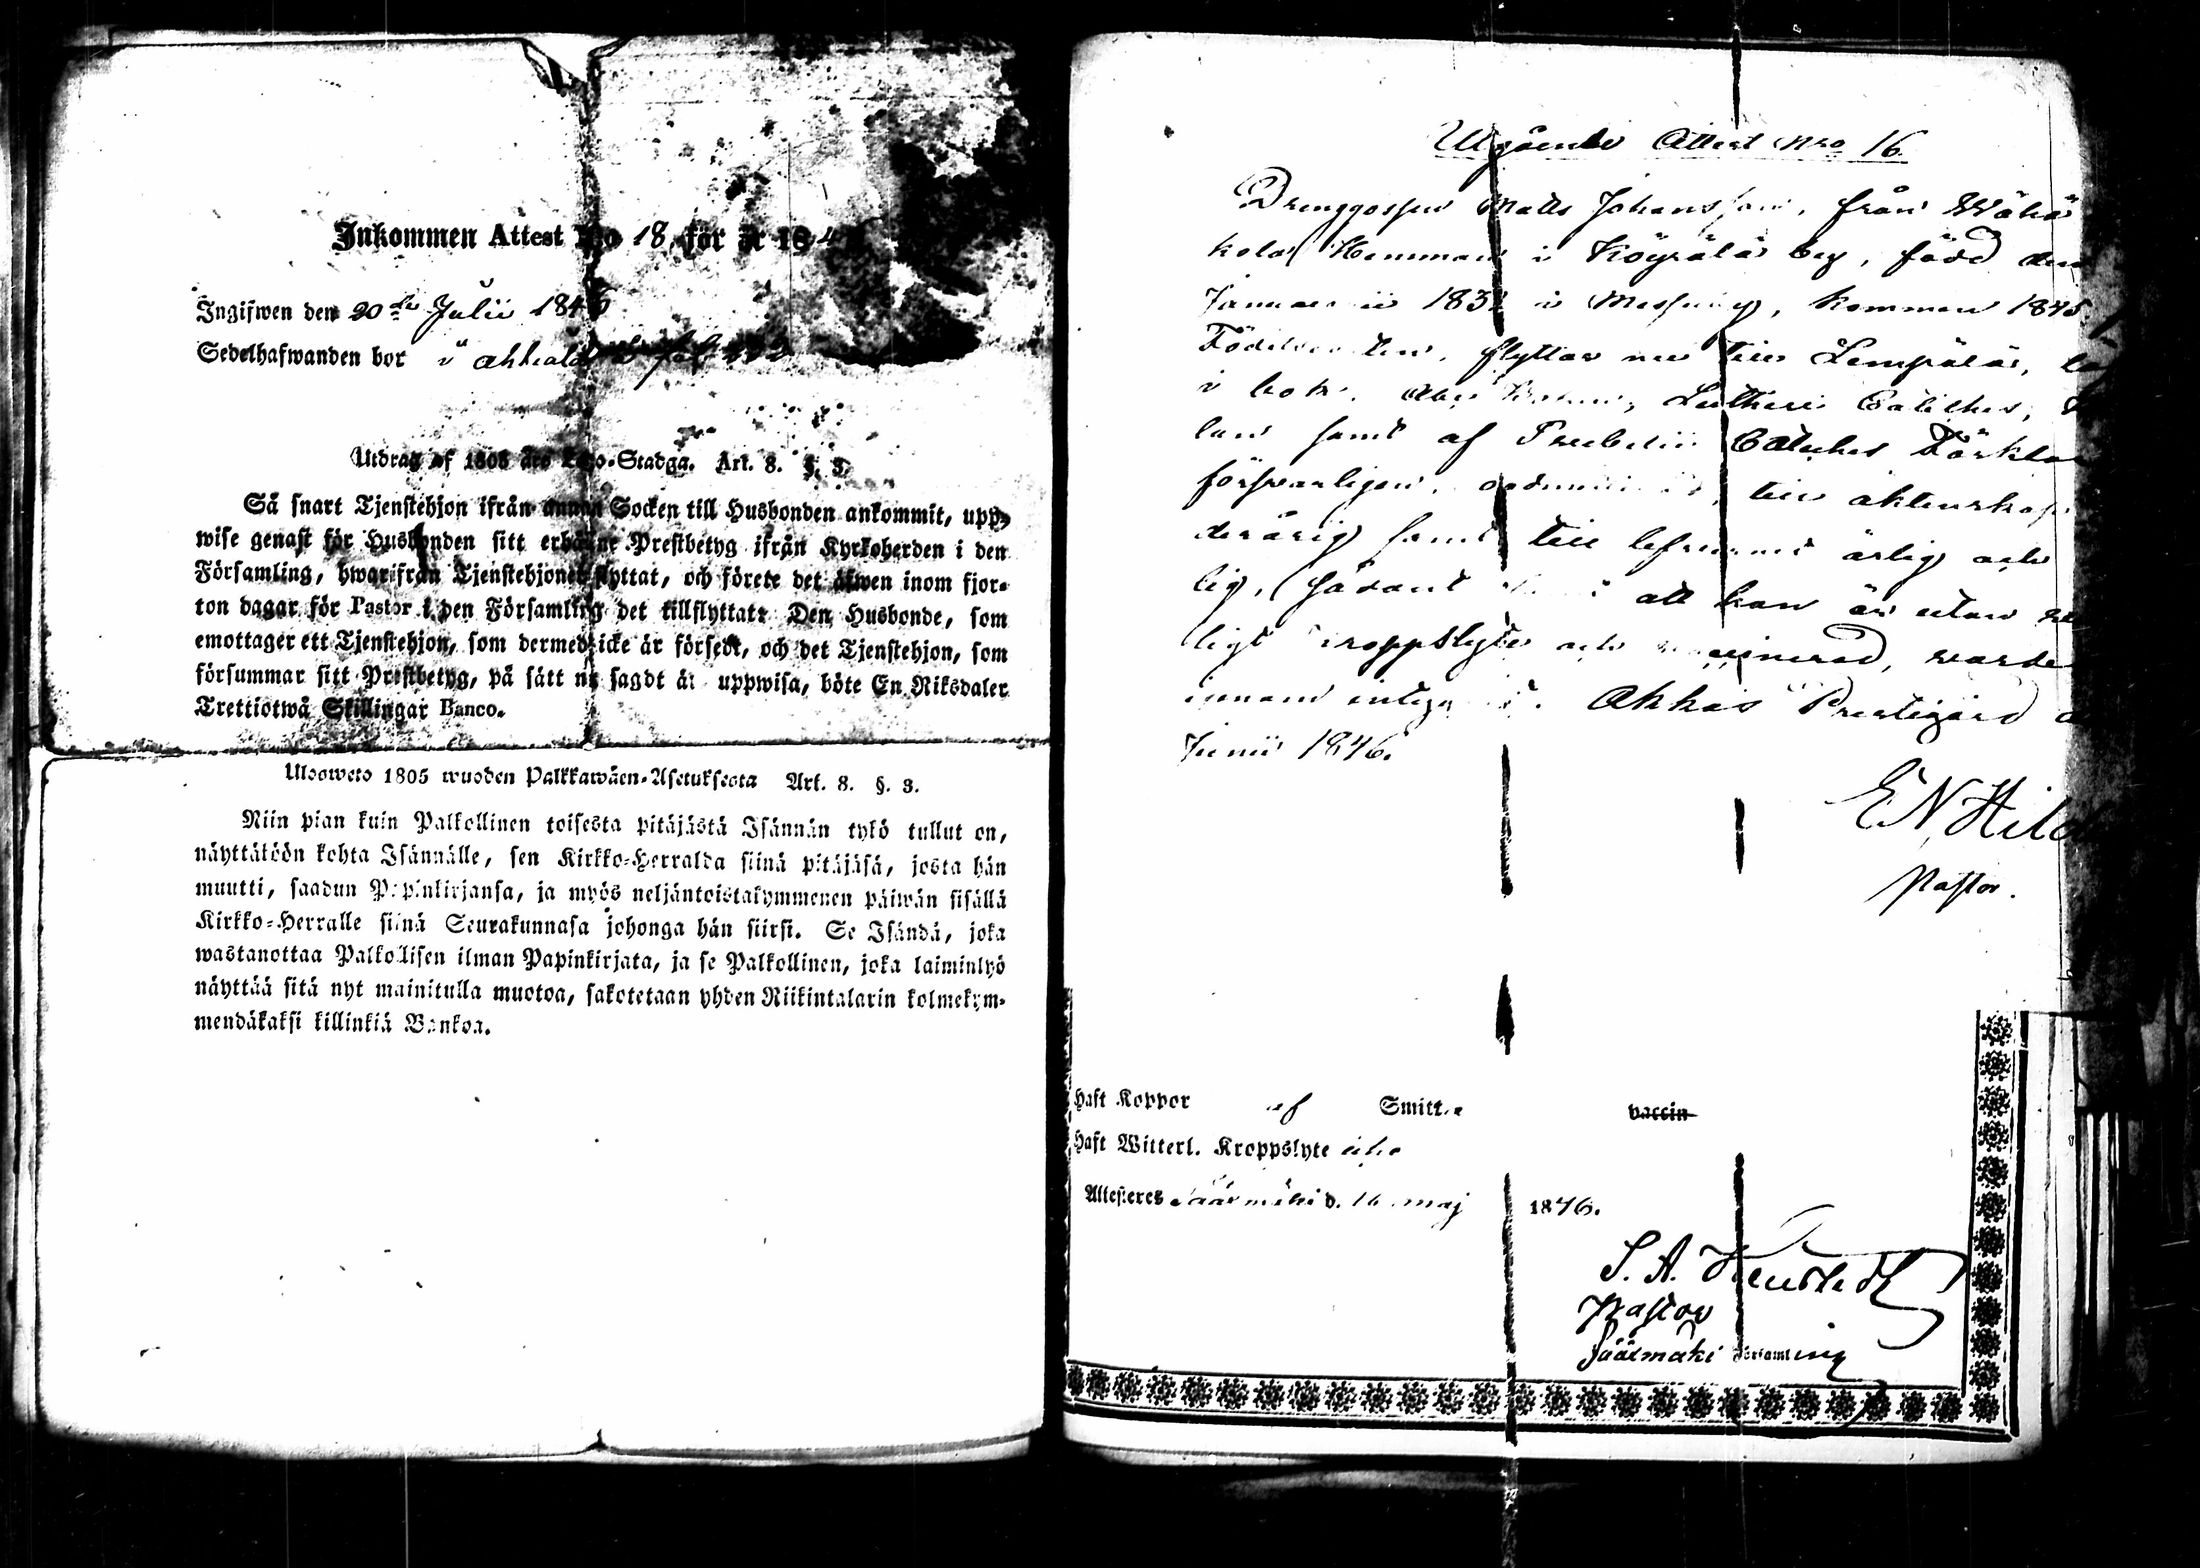 Inkommen Attest No 18 för år 184
Ingifwen den 20de Julii 1846
Sedelhafwanden bor i Ahhiala
Utdrag af 1805 års Lego-Stadga. Art. 8. §. 3.
Så snart Tjenstehjon ifrån annan Socken till Husbonden ankommit, upp-
wise genast för Husbonden sitt erhållne Prestbetyg ifrån Kyrkoherden i den
Församling, hwarifrån Tjenstehjonet flyttat, och förete det äfwen inom fjor-
ton dagar för Pastor i den Församling det tillflyttat. Den Husbonde, som
emottager ett Tjenstehjon, som dermed icke är försedt, och det Tjenstehjon, som
försummar sitt Prestbetyg, på sätt nu sagdt är uppwisa, böte En Riksdaler
Trettiotwå Skillingar Banco.
Ulosweto 1805 wuoden Palkkawäen-Asetuksesta Art. 8. §. 3.
Niin pian kuin Palkollinen toisesta pitäjästä Isännän tykö tullut on,
näyttäköön kohta Isännälle, sen Kirkko-Herralda siinä pitäjäsä, josta hän
muutti, saadun Papinkirjansa, ja myös neljäntoistakymmenen päiwän sisällä
Kirkko-Herralle siinä Seurakunnasa johonga hän siirsi. Se Isändä, joka
wastanottaa Palkollisen ilman Papinkirjata, ja se Palkollinen, joka laiminlyö
näyttää sitä nyt mainitulla muotoa, sakotetaan yhden Riikintalarin kolmekym-
mendäkaksi killinkiä Bankoa.
Utgående Attest Nro 16
Drenggossen Matts Johansson, från Wähä
kola Hemman i Köyrälä by, född den
Januarii 183 i Messuby, kommen 1845
Födelseorten, flyttar nu till Lempälä,
i bok, Abc Boken, Lutheri Catches,
lan samt af Svebelii Catches Förkla
försvarligen, till äktenskap
derårig samt till lefvernet ärlig och
lig, sådant att han är utan
ligt kroppslyte och vaccinerad, warde
innan intyga Ahkas Prestegård
Junii 1846.
E N Hild
Pastor.
Haft Koppor af Smitta vaccin
Haft Witterl. Kroppslyte icke
Attesteres Säärmäki d. 16 Maj 1846.
S. A.
Pastor
Säärmäki Församling